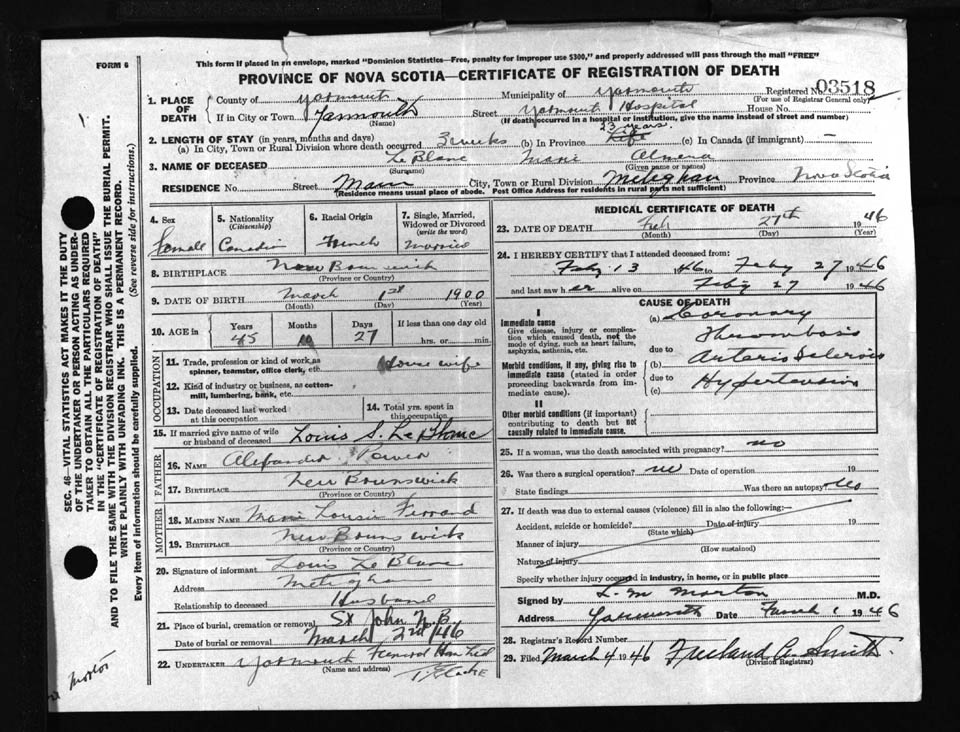 This form if placed in an envelope, marked "Dominion Statistics—Free, penalty for improper use $300," and properly addressed will pass through the mail "FREE"
FORM 6
PROVINCE OF NOVA SCOTIA—CERTIFICATE OF REGISTRATION OF DEATH
Registered No. 03518
(For use of Registrar General only)
1. PLACE OF DEATH County of Yarmouth Municipality of Yarmouth
If in City or Town Yarmouth Street Yarmouth Hospital House No.
(Name) (If death occurred in a hospital or institution, give the name instead of street and number)
2. LENGTH OF STAY (in years, months and days) 23 years.
(a) In City, Town or Rural Division where death occurred 3 weeks (b) In Province Life (c) In Canada (if immigrant) —
3. NAME OF DECEASED Le Blanc Marie Almena
(Surname) (Given name or names)
RESIDENCE No. Street Main City, Town or Rural Division Meteghan Province Nova Scotia
(Residence means usual place of abode. Post Office Address for residents in rural parts not sufficient)
4. Sex 5. Nationality (Citizenship) 6. Racial Origin 7. Single, Married, Widowed or Divorced (write the word)
Female Canadian French Married
8. BIRTHPLACE New Brunswick
(Province or Country)
9. DATE OF BIRTH March 1st 1900
(Month) (Day) (Year)
10. AGE in Years Months Days If less than one day
45 27 hrs. or min.
OCCUPATION
11. Trade, profession or kind of work as spinner, teamster, office clerk, etc. House wife
12. Kind of industry or business, as cotton-mill, lumbering, bank, etc.
13. Date deceased last worked at this occupation
14. Total yrs. spent in this occupation
15. If married give name of wife or husband of deceased Louis S. Le Blanc
FATHER
16. NAME Alexander
17. BIRTHPLACE New Brunswick
(Province or Country)
MOTHER
18. MAIDEN NAME Marie Louise
19. BIRTHPLACE New Brunswick
(Province or Country)
20. Signature of informant Louis Le Blanc
Address Meteghan
Relationship to deceased Husband
21. Place of burial, cremation or removal St John N.B.
Date of burial or removal March 2nd/46
22. UNDERTAKER Yarmouth Funeral
(Name and address)
MEDICAL CERTIFICATE OF DEATH
23. DATE OF DEATH Feb 27th 1946
(Month) (Day) (Year)
24. I HEREBY CERTIFY that I attended deceased from:
Feby 13 1946 to Feby 27 1946
and last saw her alive on Feby 27 1946
CAUSE OF DEATH
I
Immediate cause
Give disease, injury or complication which caused death, not the mode of dying, such as heart failure, asphyxia, asthenia, etc.
(a) Coronary Thrombosis
due to
Morbid conditions, if any, giving rise to immediate cause (stated in order proceeding backwards from immediate cause).
(b) Arterio Sclerosis
due to
(c) Hypertension
II
Other morbid conditions (if important) contributing to death but not causally related to immediate cause.
25. If a woman, was the death associated with pregnancy? no
26. Was there a surgical operation? no Date of operation 19
State findings Was there an autopsy? No
27. If death was due to external causes (violence) fill in also the following:—
Accident, suicide or homicide? Date of injury 19
(State which)
Manner of injury
(How sustained)
Nature of injury
Specify whether injury occured in industry, in home, or in public place
Signed by L. M. Morton M.D.
Address Yarmouth Date March 1 1946
28. Registrar's Record Number
29. Filed March 4 1946 Freeland A. Smith
(Division Registrar)
SEC. 46—VITAL STATISTICS ACT MAKES IT THE DUTY
OF THE UNDERTAKER OR PERSON ACTING AS UNDERTAKER TO OBTAIN ALL THE PARTICULARS REQUIRED
IN THE "CERTIFICATE OF REGISTRATION OF DEATH"
AND TO FILE THE SAME WITH THE DIVISION REGISTRAR WHO SHALL ISSUE THE BURIAL PERMIT.
WRITE PLAINLY WITH UNFADING INK. THIS IS A PERMANENT RECORD.
Every item of information should be carefully supplied. (See reverse side for instructions.)